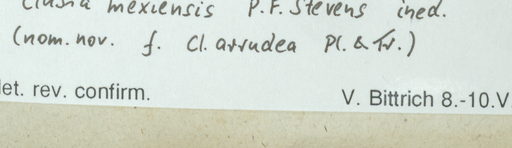 Clusia mexiensis P.F. Stevens ined.
(nom. nov. f. Cl. arrudea Pl. & Tr.)
det. rev. confirm. V. Bittrich 8.-10.V